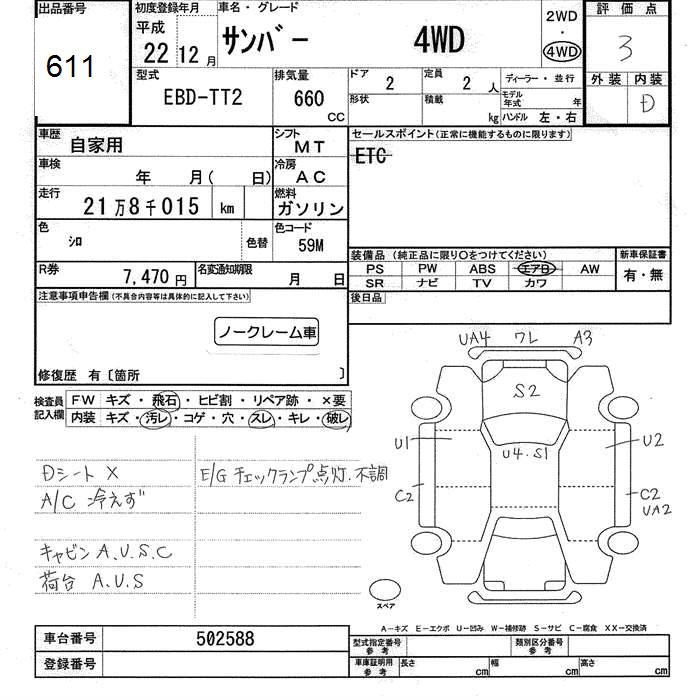 出品番号
611
初度登録年月
平成
22 12 月
車名・グレード
サンバー 4WD
2WD
・
4WD
評価点
3
外装 内装
D
型式
EBD-TT2
排気量
660 CC
ドア 2
定員 2 人
形状
積載 kg
ディーラー・並行
モデル年式 年
ハンドル 左・右
車歴 自家用
シフト MT
車検 年 月( 日)
冷房 AC
走行 21万8千015 km
燃料 ガソリン
色 シロ
色替
色コード 59M
R券 7,470 円
名変通知期限 月 日
セールスポイント(正常に機能するものに限ります)
ETC
装備品 (純正品に限り○をつけてください)
PS PW ABS エアB AW
SR ナビ TV カワ
新車保証書
有・無
後日品
注意事項申告欄(不具合内容等は具体的に記入して下さい)
ノークレーム車
修復歴 有〔箇所 〕
検査員記入欄
FW キズ・飛石・ヒビ割・リペア跡・×要
内装 キズ・汚レ・コゲ・穴・スレ・キレ・破レ
Dシート X
A/C 冷えず
キャビン A.U.S.C
荷台 A.U.S
E/G チェックランプ点灯.不調
UA4 ワレ A3
S2
U4.S1
U1
U2
C2
C2
UA2
スペア
A-キズ E-エクボ U-凹み W-補修跡 S-サビ C-腐食 XX-交換済
車台番号 502588
登録番号
型式指定番号 参考
類別区分番号 参考
車庫証明用 参考
長さ cm
幅 cm
高さ cm